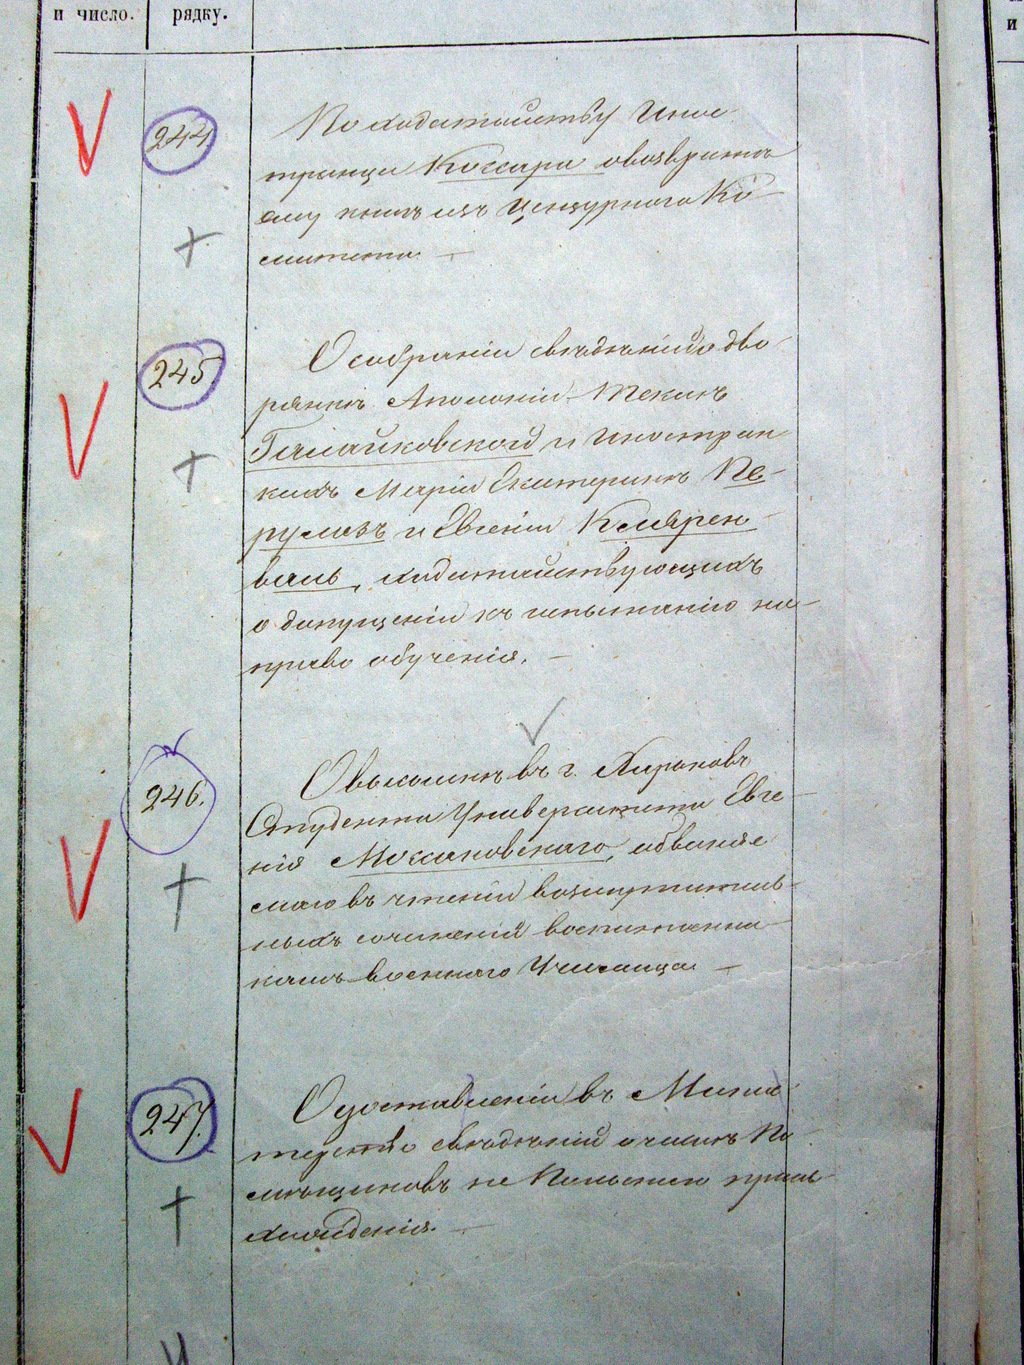 и число.
рядку.
и
244
По ходатайству Инос
транца Коссара о возврате
ему книгъ изъ Цензурнаго Ко
митета. —
245.
О собраніи свѣдѣній о дво-
рянкѣ Аполоніи Теклѣ
и иностран
кахъ Маріи Екатеринѣ
и Евгеніи Клярен
валь, ходатайствующихъ
о допущеніи къ испытанію на
право обученія. —
246.
О высылкѣ въ г. Харьковъ
Студента Университета Евге
нія Моссаковскаго, обвиняе
маго въ чтеніи возмутитель-
ныхъ сочиненій воспитанни
камъ военнаго Училища —
247.
О доставленіи въ Мини
терство свѣдѣній о числѣ По
мѣщиковъ не Польскаго проис
хожденія. —